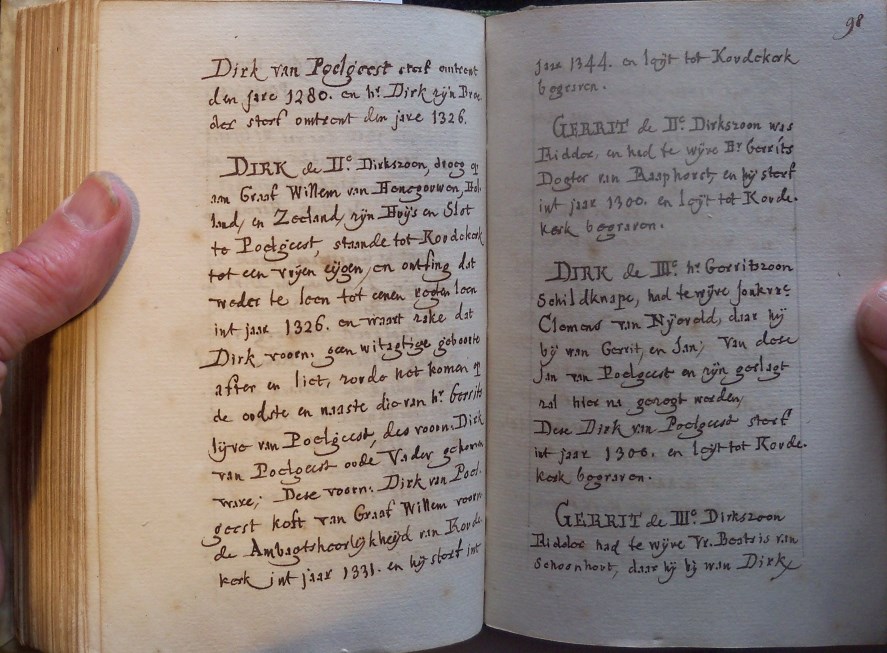 Dirk van Poelgeest sterf omtrent
den jare 1280. en hr. Dirk zyn Broe
der sterf omtrent den jare 1326.
DIRK de IIe. Dirkszoon, droeg op
aan Graaf Willem van Henegouwen, Hol
land, en Zeeland, zyn Huijs en Slot
te Poelgeest, staande tot Koudekerk
tot een vrijen eijgen, en ontfing dat
weder te leen tot eenen regten leen
int jaar 1326. en waart zake dat
Dirk voorn: geen wittagtige geboorte
after en liet, zoude het komen op
de oudste en naaste die van hr. Gerrits
lijve van Poelgeest, des voorn: Dirk
van Poelgeest oude Vader gekomen
ware; Dese voorn: Dirk van Poel-
geest koft van Graaf Willem voorn
de Ambagtsheerlijkheijd van Koude
kerk int jaar 1331. en hij sterf int
98
jaar 1344. en leijt tot Koudekerk
begraven.
GERRIT de IIe. Dirkszoon was
Ridder, en had te wijve Hr Gerrits
Dogter van Raaphorst, en hij sterf
int jaar 1300. en leijt tot Koude-
kerk begraven.
DIRK de IIIe. hr. Gerritszoon
Schildknape, had te wijve Jonkvre.
Clemens van Nijeveld, daar hij
bij wan Gerrit, en Jan; van dese
Jan van Poelgeest en zijn geslagt
zal hier na gezegt werden,
Dese Dirk van Poelgeest sterf
int jaar 1300. en leijt tot Koude-
kerk begraven.
GERRIT de IIIe. Dirkszoon
Ridder had te wijve Vr. Beatris van
Schoonhout, daar hij bij wan Dirk